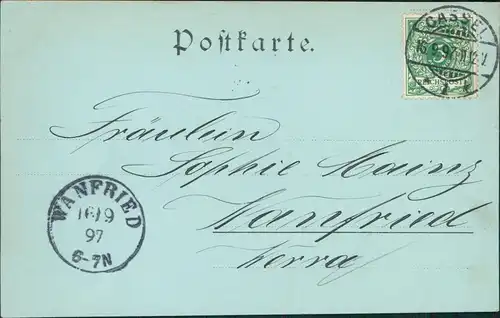 Postkarte.
CASSEL
16.9.97.11-12V.
Fräulein
Sophie Mainz
Wanfried
Werra
WANFRIED
16/9
97
6-7N